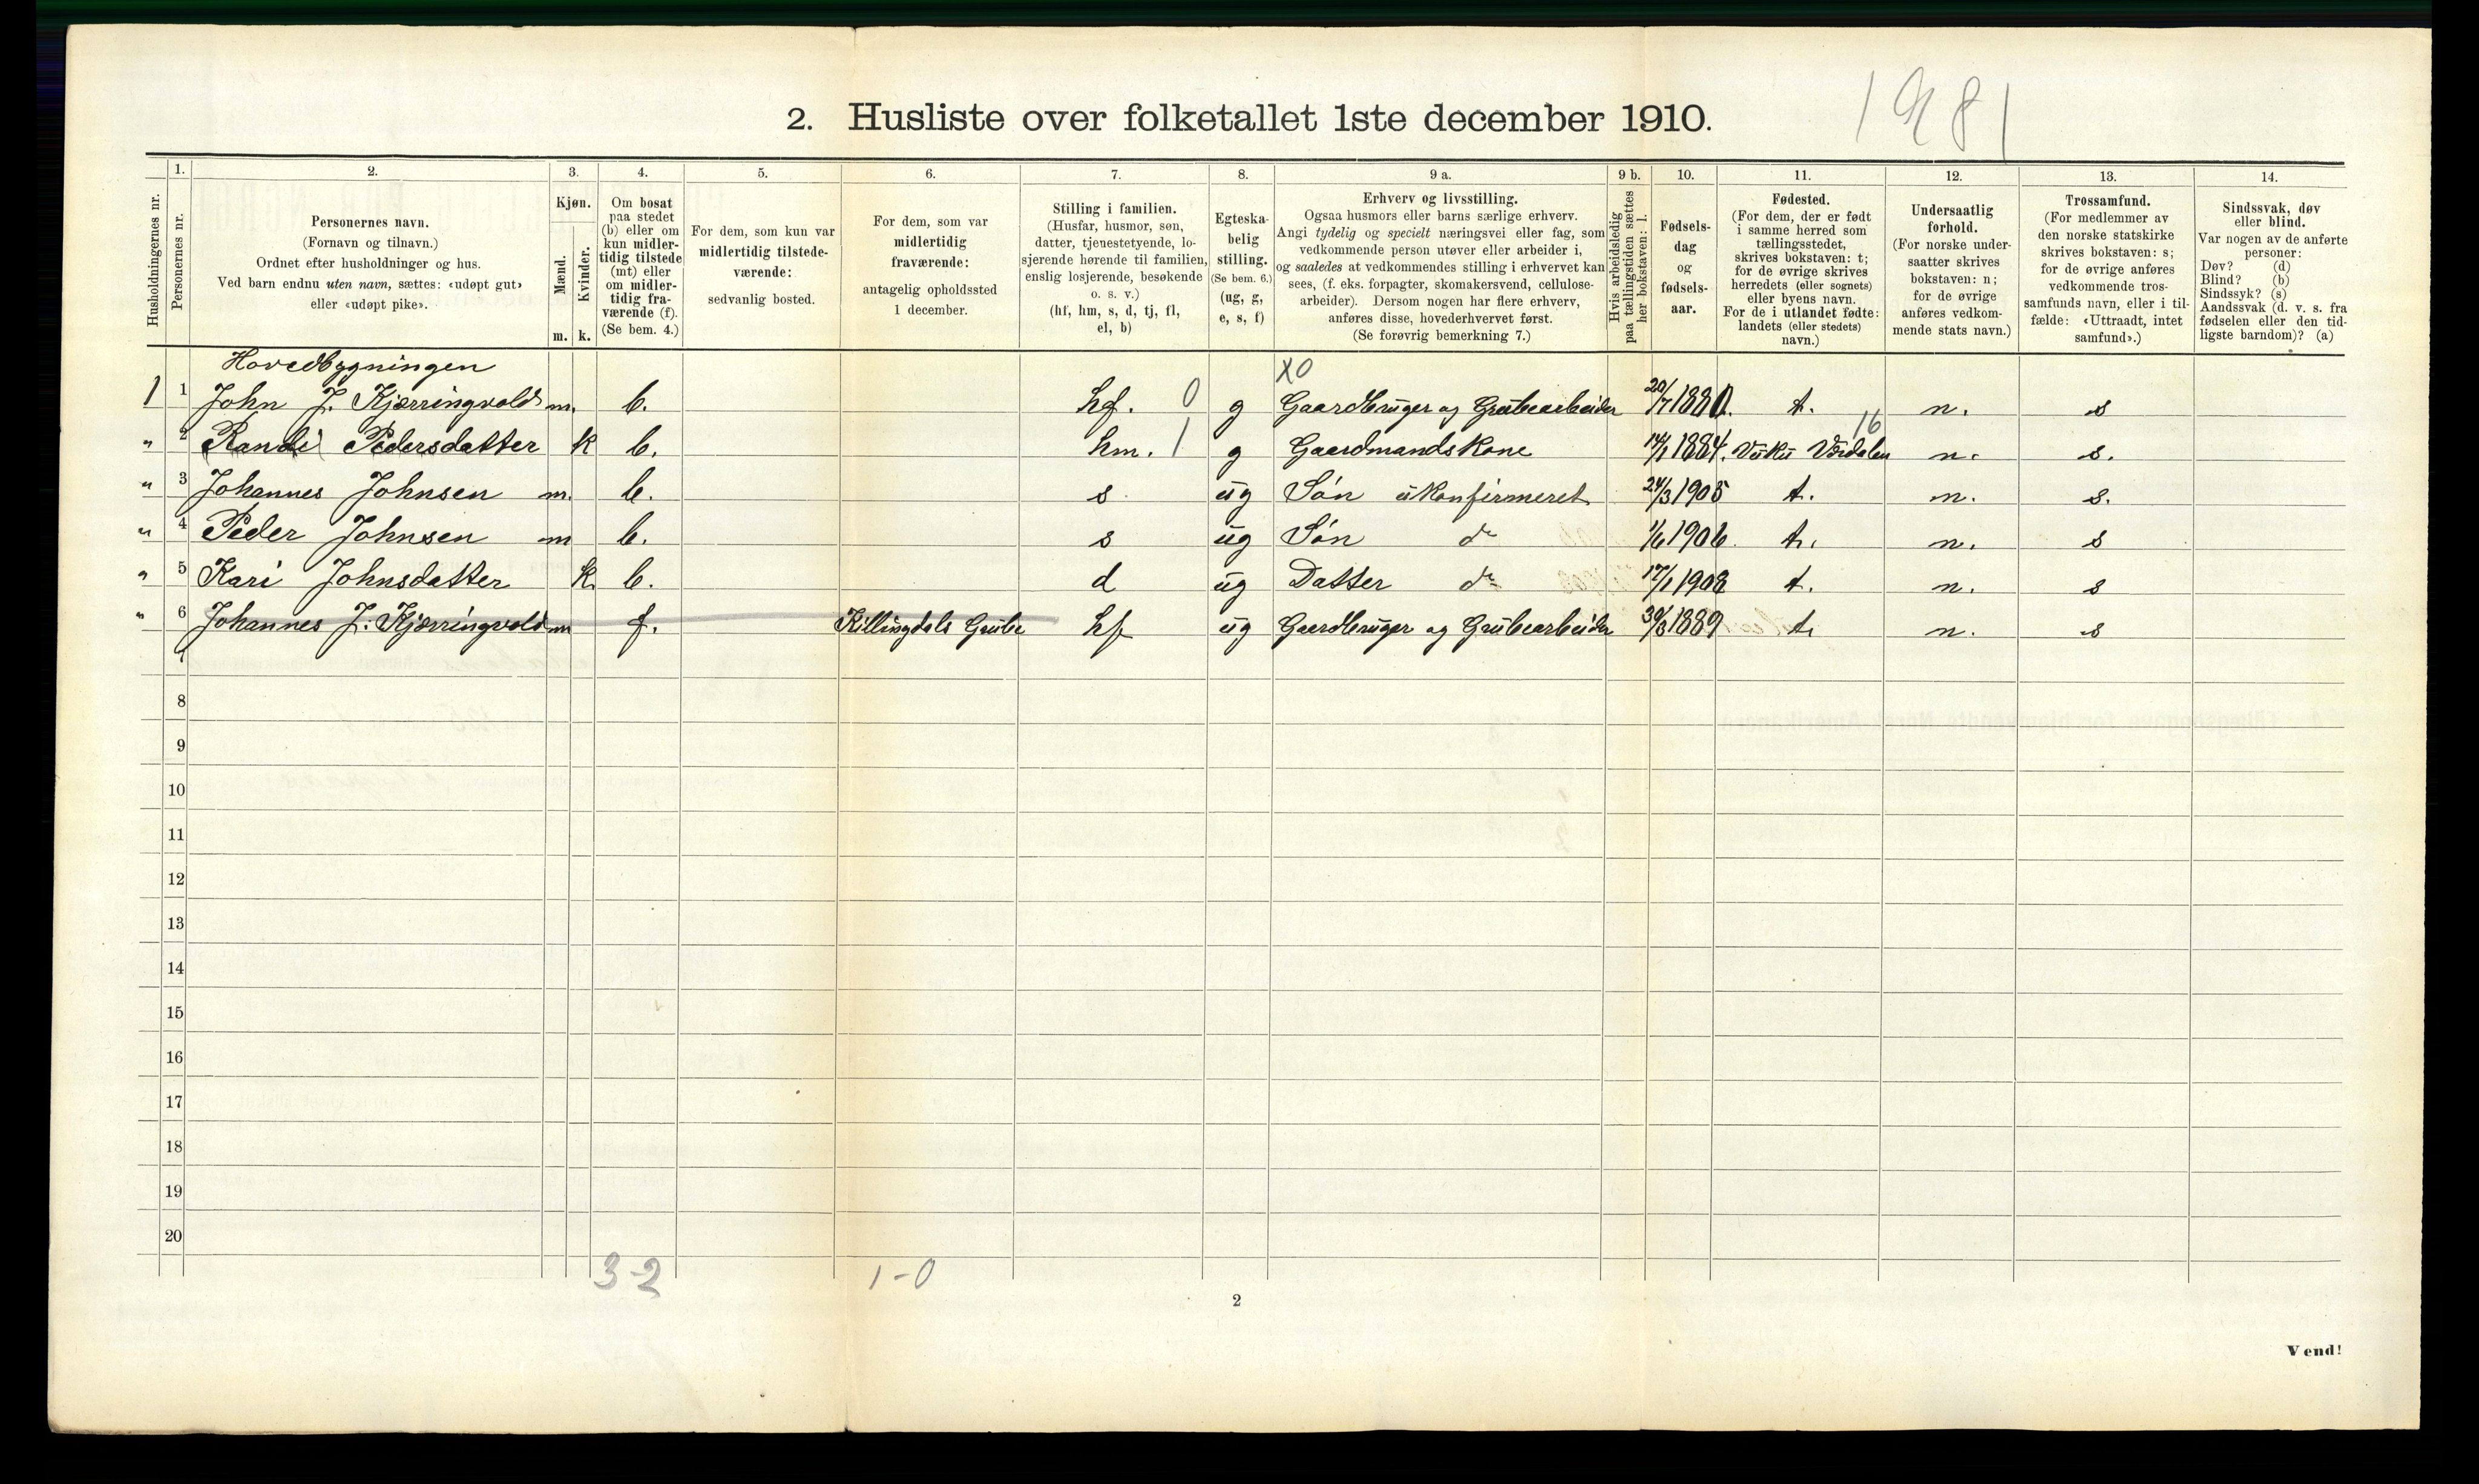 2. Husliste over folketallet 1ste december 1910.
Husholdningernes nr.
1.
Personernes nr.
2.
Personernes navn.
(Fornavn og tilnavn.)
Ordnet efter husholdninger og hus.
Ved barn endnu uten navn, sættes: «udøpt gut»
eller «udøpt pike».
3.
Kjøn.
Mænd.
Kvinder.
m. k.
4.
Om bosat
paa stedet
(b) eller om
kun midler-
tidig tilstede
(mt) eller
om midler-
tidig fra-
værende (f).
(Se bem. 4.)
5.
For dem, som kun var
midlertidig tilstede-
værende:
sedvanlig bosted.
6.
For dem, som var
midlertidig
fraværende:
antagelig opholdssted
1 december.
7.
Stilling i familien.
(Husfar, husmor, søn,
datter, tjenestetyende, lo-
sjerende hørende til familien,
enslig losjerende, besøkende
o. s. v.)
(hf, hm, s, d, tj, fl,
el, b)
8.
Egteska-
belig
stilling.
(Se bem. 6.)
(ug, g,
e, s, f)
9 a.
Erhverv og livsstilling.
Ogsaa husmors eller barns særlige erhverv.
Angi tydelig og specielt næringsvei eller fag, som
vedkommende person utøver eller arbeider i,
og saaledes at vedkommendes stilling i erhvervet kan
sees, (f. eks. forpagter, skomakersvend, cellulose-
arbeider). Dersom nogen har flere erhverv,
anføres disse, hovederhvervet først.
(Se forøvrig bemerkning 7.)
9 b.
Hvis arbeidsledig
paa tællingstiden sættes
her bokstaven: l.
10.
Fødsels-
dag
og
fødsels-
aar.
11.
Fødested.
(For dem, der er født
i samme herred som
tællingsstedet,
skrives bokstaven: t;
for de øvrige skrives
herredets (eller sognets)
eller byens navn.
For de i utlandet fødte:
landets (eller stedets)
navn.)
12.
Undersaatlig
forhold.
(For norske under-
saatter skrives
bokstaven: n;
for de øvrige
anføres vedkom-
mende stats navn.)
13.
Trossamfund.
(For medlemmer av
den norske statskirke
skrives bokstaven: s;
for de øvrige anføres
vedkommende tros-
samfunds navn, eller i til-
fælde: «Uttraadt, intet
samfund».)
14.
Sindssvak, døv
eller blind.
Var nogen av de anførte
personer:
Døv? (d)
Blind? (b)
Sindssyk? (s)
Aandssvak (d. v. s. fra
fødselen eller den tid-
ligste barndom)? (a)
Hovedbygningen
X0
1 1 John J. Kjærringvold m. b. hf. 0 g Gaardbruger og Grubearbeider 20/7 1880. t. n. s
16
" 2 Randi Pedersdatter k b. hm. 1 g Gaardmandskone 14/1 1884. Vuku Værdalen n. s.
" 3 Johannes Johnsen m. b. s ug Søn ukonfirmeret 24/3 1905 t. n. s.
" 4 Peder Johnsen m b. s ug Søn do 1/6 1906 t. n. s
" 5 Kari Johnsdatter k. b. d ug Datter do 17/1 1908 t. n. s
" 6 Johannes J. Kjærringvold m f. Killingdals Grube hf ug Gaardbruger og Grubearbeider 30/3 1889 t. n. s
7
8
9
10
11
12
13
14
15
16
17
18
19
20
3-2 1-0
2
Vend!